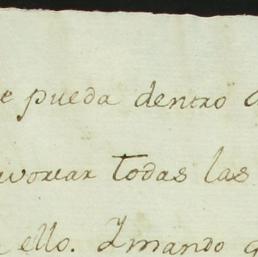 e pueda dentro
vorcar todas las
ello. Y mando